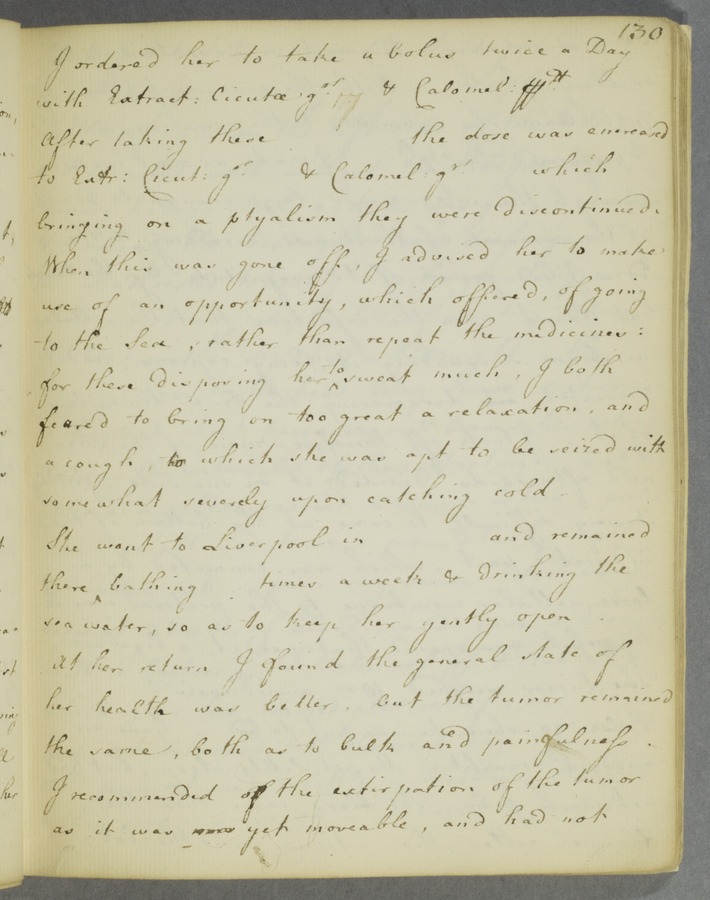 130
I ordered her to take a bolus twice a Day
with Extract: Cicutæ grs & Calomel:
After taking these the dose was encreased
to Extr: Cicut: grs & Calomel grs which
bringing on a ptyalism they were discontinued.
When this was gone off, I advised her to make
use of an opportunity, which offered, of going
to the Sea, rather than repeat the medicines:
for these disposing her to sweat much, I both
feared to bring on too great a relaxation, and
a cough, to which she was apt to be seized with
somewhat severely upon catching cold.
She went to Liverpool in and remained
there bathing times a week & drinking the
sea water, so as to keep her gently open.
At her return I found the general state of
her health was better, but the tumor remained
the same, both as to bulk and painfulness.
I recommended of the extirpation of the tumor
as it was yet moveable, and had not